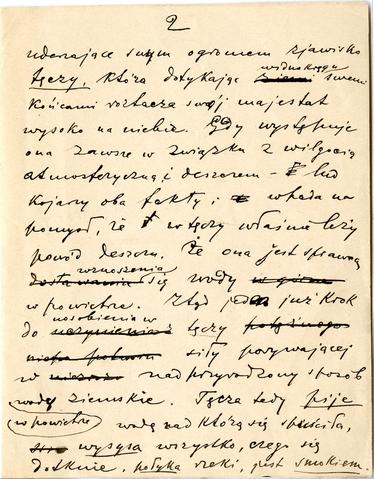 2
uderzające swym ogromem zjawisko
tęczy, która dotykając widnokręgu swemi
końcami roztacza swój majestat
wysoko na niebie. Gdy występuje
ona zawsze w związku z wilgocią
atmosferyczną i deszczem – lud
kojarzy oba fakty i wpada na
pomysł, że w tęczy właśnie leży
powód deszczu. Że ona jest sprawcą
wznoszenia
dostawania się wody w górne
w powietrze. Ztąd jeden już krok
uosobienia w
do uczynienia z tęczy potężnego
siły porywającej
w nadprzyrodzony sposób
wodę ziemskie. Tęcza tedy pije
w powietrze wodę nad którą się spuściła,
wysysa wszystko, czego się
dotknie, połyka rzeki, jest smokiem.